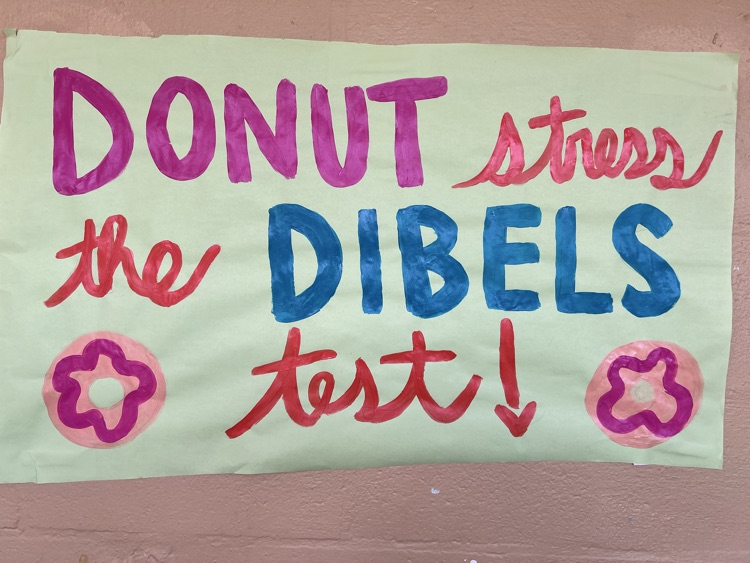 DONUT stress
the DIBELS
test!